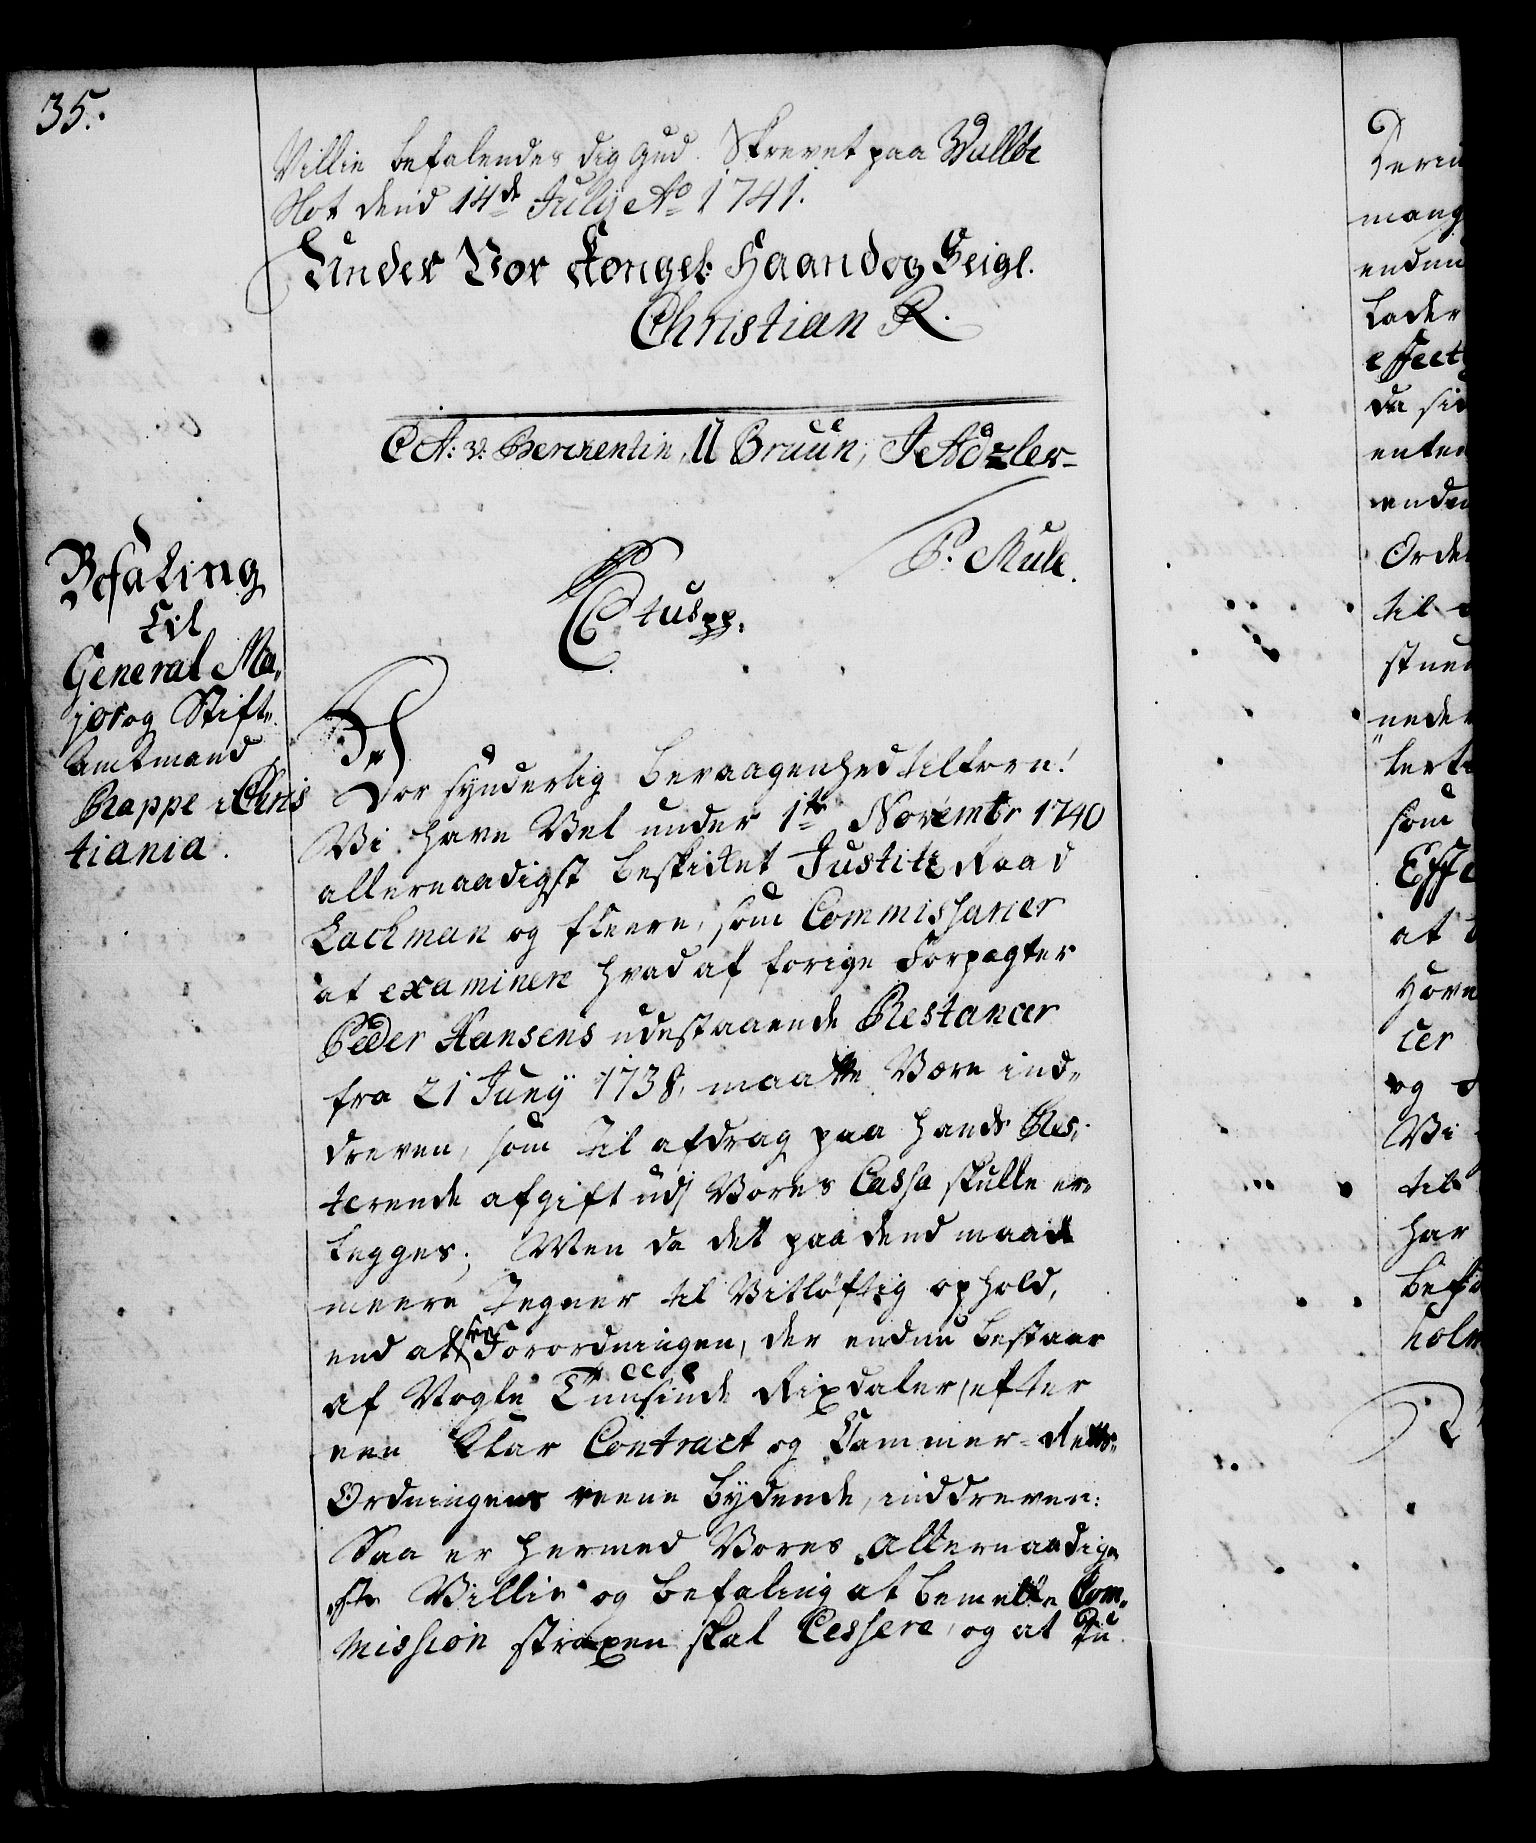 35.
Villie befalendes dig Gud. Skrevet paa Walløe
Slot dend 14de July Ao 1741.
Under Vor Kongel: Haand og Seigl.
Christian R.
C A: v: Berckentin, U Bruun, J Adzler
P. Mule.
Befaling
til
General Ma-
jor og Stift-
amtmand
Rappe i Chris
tiania.
C 6tus pp.
Vor synderlig bevaagenhed tilforn!
Vi have Vel under 1te Novembr 1740
allernaadigst beskikket Justitz Raad
Lachman og fleere, som Commissarier
at examinere hvad af forige Forpagter
Peder Hansens udestaaende Restancer
fra 21 Juny 1738, maatte Være ind-
dreven, som til afdrag paa hands Res-
terende afgift udj Vores Cassa skulle er-
legges; Men da det paa dend maade
meere Tegner til Vitløftig ophold,
end at Forordningen, der endnu bestaar
af Nogle Tuusinde Rixdaler, efter
een klar Contract og Cammer-Retts-
Ordningens reene bydende, inddreven:
Saa er hermed Vores Allernaadig-
ste Villie og befaling at bemelte Com-
mission straxen skal Cessere, og at Du
mang
endnu
lader
effect
da
enten
Orde
til
som
Effe
at
cer
og
Vi
til
har
holm